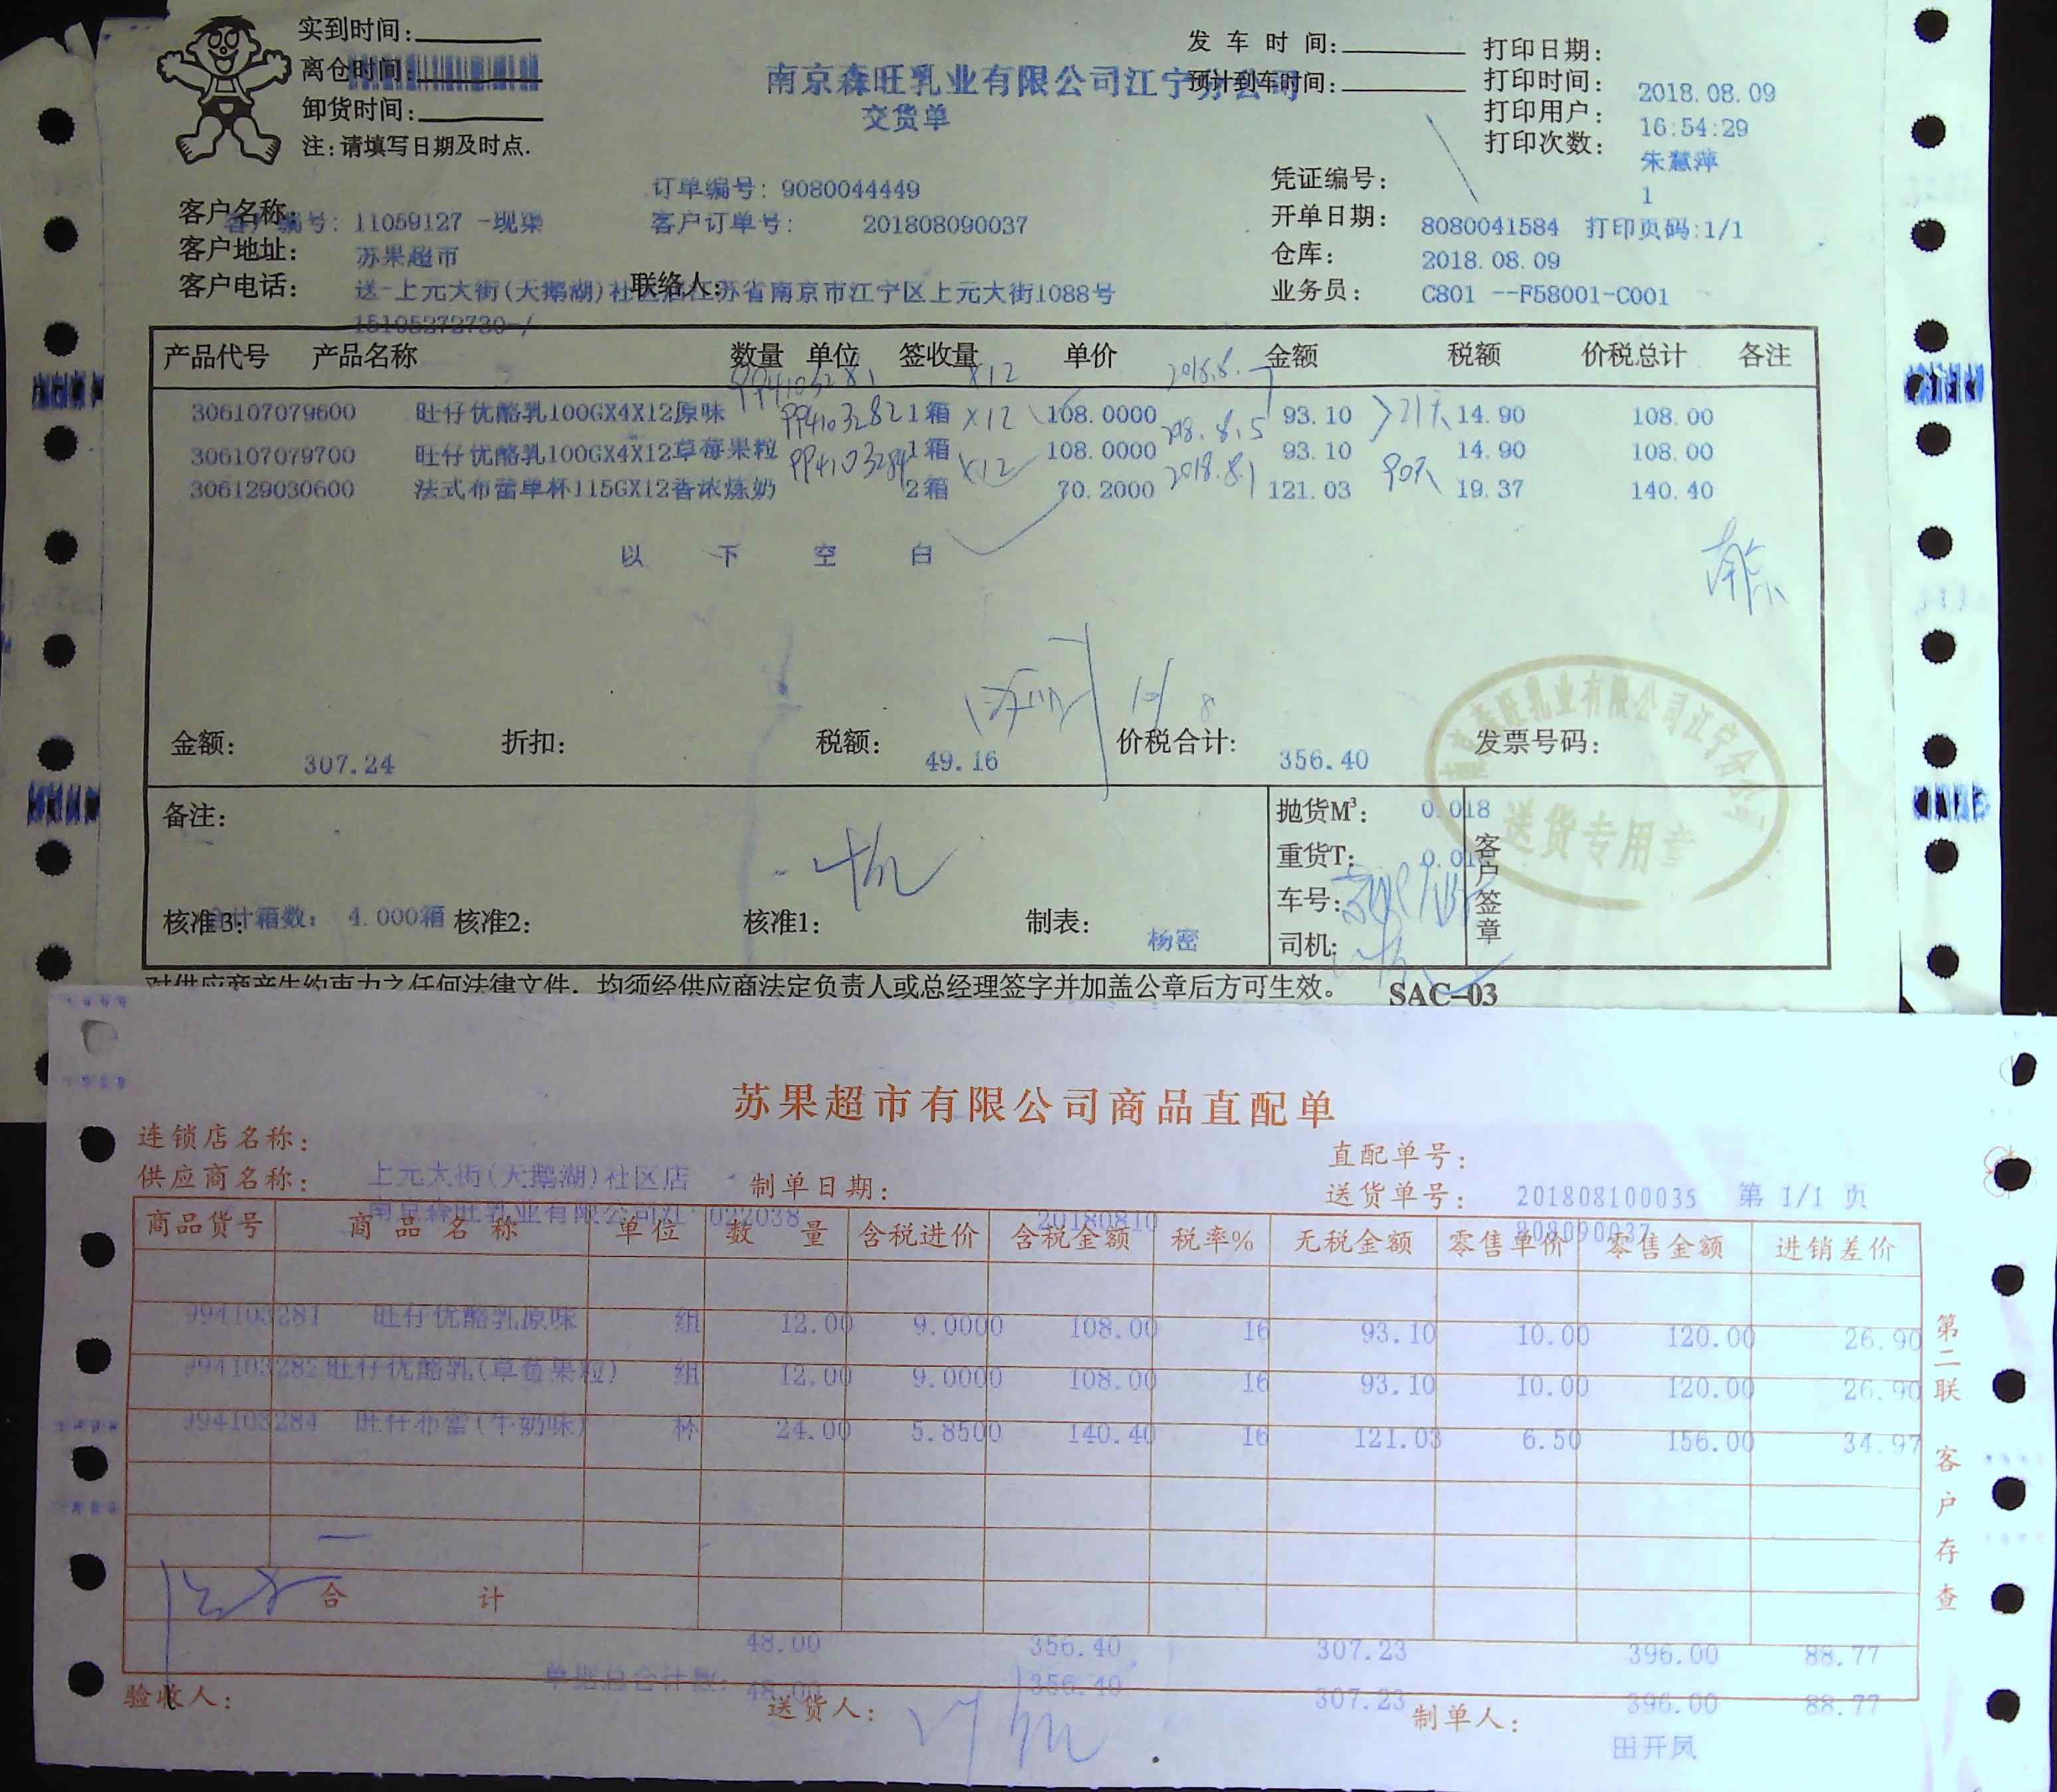 实到时间:
离仓时间:
卸货时间:
注:请填写日期及时点.
南京森旺乳业有限公司江宁分公司
交货单
发 车 时 间:
预计到车时间:
打印日期: 2018.08.09
打印时间: 16:54:29
打印用户: 朱慧萍
打印次数: 1
订单编号: 9080044449
客户编号: 11059127 -现渠
客户订单号: 201808090037
客户名称: 苏果超市
客户地址: 送-上元大街(天鹅湖)社区店江苏省南京市江宁区上元大街1088号
客户电话: 15105272730-/
联络人:
凭证编号: 8080041584 打印页码:1/1
开单日期: 2018.08.09
仓库: C801 --F58001-C001
业务员:
产品代号 产品名称 数量 单位 签收量 单价 金额 税额 价税总计 各注
994103281 X12 2018.8.7
306107079600 旺仔优酪乳100GX4X12原味 1箱 108.0000 93.10 14.90 108.00
994103282 X12 2018.8.5 21天
306107079700 旺仔优酪乳100GX4X12草莓果粒 1箱 108.0000 93.10 14.90 108.00
994103284 X12 2018.8.1 90天
306129030600 法式布蕾单杯115GX12香浓炼奶 2箱 70.2000 121.03 19.37 140.40
以 下 空 白
金额: 307.24 折扣: 税额: 49.16 价税合计: 356.40 发票号码:
南京森旺乳业有限公司江宁分公司
送货专用章
备注:
抛货M³: 0.018
重货T:
车号:
司机:
客户签章
合计箱数: 4.000箱
核准3: 核准2: 核准1: 制表: 杨密
对供应商产生约束力之任何法律文件，均须经供应商法定负责人或总经理签字并加盖公章后方可生效。 SAC-03
苏果超市有限公司商品直配单
连锁店名称: 上元大街(天鹅湖)社区店
供应商名称: 南京森旺乳业有限公司江 022038
制单日期: 20180810
直配单号: 201808100035 第 1/1 页
送货单号: 808090037
商品货号 商品名称 单位 数量 含税进价 含税金额 税率% 无税金额 零售单价 零售金额 进销差价
994103281 旺仔优酪乳原味 组 12.00 9.0000 108.00 16 93.10 10.00 120.00 26.90
994103282 旺仔优酪乳(草莓果粒) 组 12.00 9.0000 108.00 16 93.10 10.00 120.00 26.90
994103284 旺仔布蕾(牛奶味) 杯 24.00 5.8500 140.40 16 121.03 6.50 156.00 34.97
合 计
48.00 356.40 307.23 396.00 88.77
单据总合计数: 48.00 356.40 307.23 396.00 88.77
验收人: 送货人: 制单人: 田开凤
第二联 客户存查